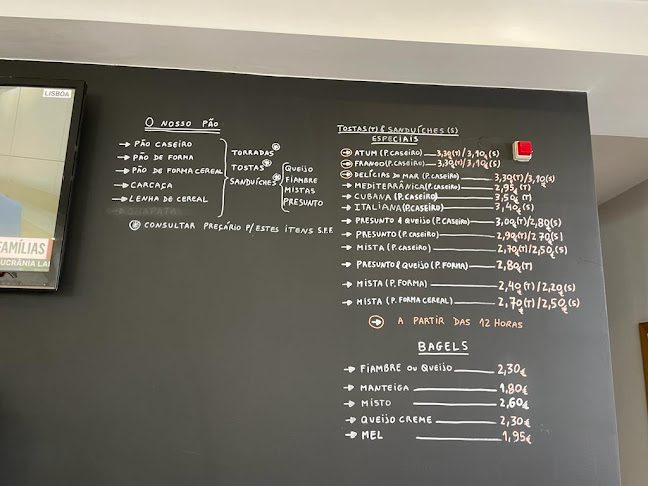 LISBOA
FAMÍLIAS
UCRÂNIA
O NOSSO PÃO
→ PÃO CASEIRO
→ PÃO DE FORMA
→ PÃO DE FORMA CEREAL
→ CARCAÇA
→ LENHA DE CEREAL
TORRADAS
TOSTAS
SANDUÍCHES
QUEIJO
FIAMBRE
MISTAS
PRESUNTO
* CONSULTAR PREÇÁRIO P/ ESTES ITENS S.F.F.
TOSTAS(T) & SANDUÍCHES (S)
ESPECIAIS
→ ATUM (P.CASEIRO) 3,30€(T)/3,10€(S)
→ FRANGO (P.CASEIRO) 3,30€(T)/3,10€(S)
→ DELÍCIAS DO MAR (P.CASEIRO) 3,30(T)/3,10€(S)
→ MEDITERRÂNICA (P.CASEIRO) 2,95€(T)
→ CUBANA (P.CASEIRO) 3,50€(T)
→ ITALIANA (P.CASEIRO) 3,40€(S)
→ PRESUNTO & QUEIJO (P.CASEIRO) 3,00€(T)/2,80€(S)
→ PRESUNTO (P.CASEIRO) 2,90€(T)/2,70€(S)
→ MISTA (P.CASEIRO) 2,70€(T)/2,50€(S)
→ PRESUNTO & QUEIJO (P.FORMA) 2,80€(T)
→ MISTA (P.FORMA) 2,40€(T)/2,20€(S)
→ MISTA (P.FORMA CEREAL) 2,70€(T)/2,50€(S)
→ A PARTIR DAS 12 HORAS
BAGELS
→ FIAMBRE OU QUEIJO 2,30€
→ MANTEIGA 1,80€
→ MISTO 2,60€
→ QUEIJO CREME 2,30€
→ MEL 1,95€